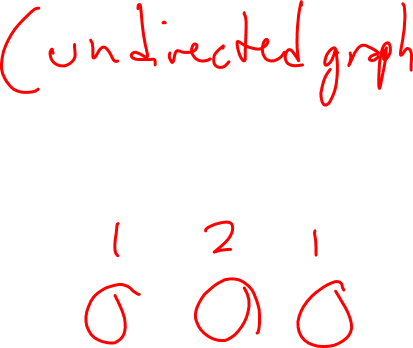 (undirected graph
1 2 1